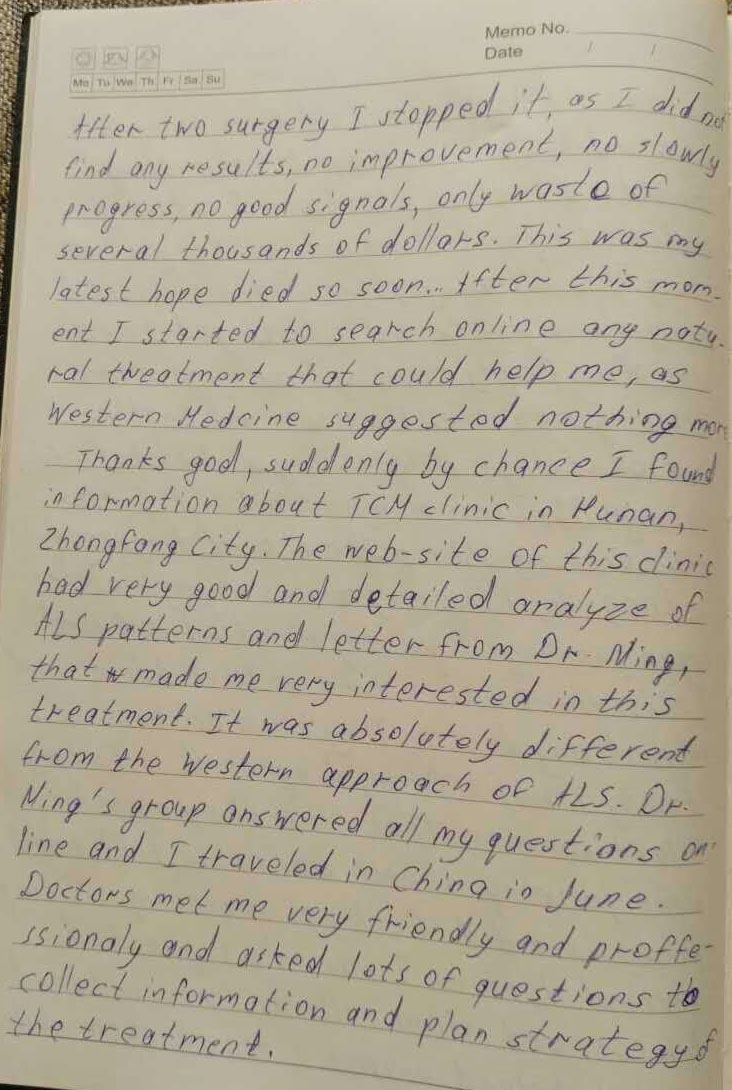 Memo No.
Date / /
Mo Tu We Th Fr Sa Su
After two surgery I stopped it, as I did not
find any results, no improvement, no slowly
progress, no good signals, only waste of
several thousands of dollars. This was my
latest hope died so soon... After this mom-
ent I started to search online any natu-
ral treatment that could help me, as
Western Medcine suggested nothing more
Thanks god, suddenly by chance I found
information about TCM clinic in Hunan,
Zhongfang City. The web-site of this clinic
had very good and detailed analyze of
ALS patterns and letter from Dr. Ming,
that made me very interested in this
treatment. It was absolutely different
from the Western approach of ALS. Dr.
Ming's group answered all my questions on
line and I traveled in China in June.
Doctors met me very friendly and proffe-
ssionaly and asked lots of questions to
collect information and plan strategy of
the treatment.